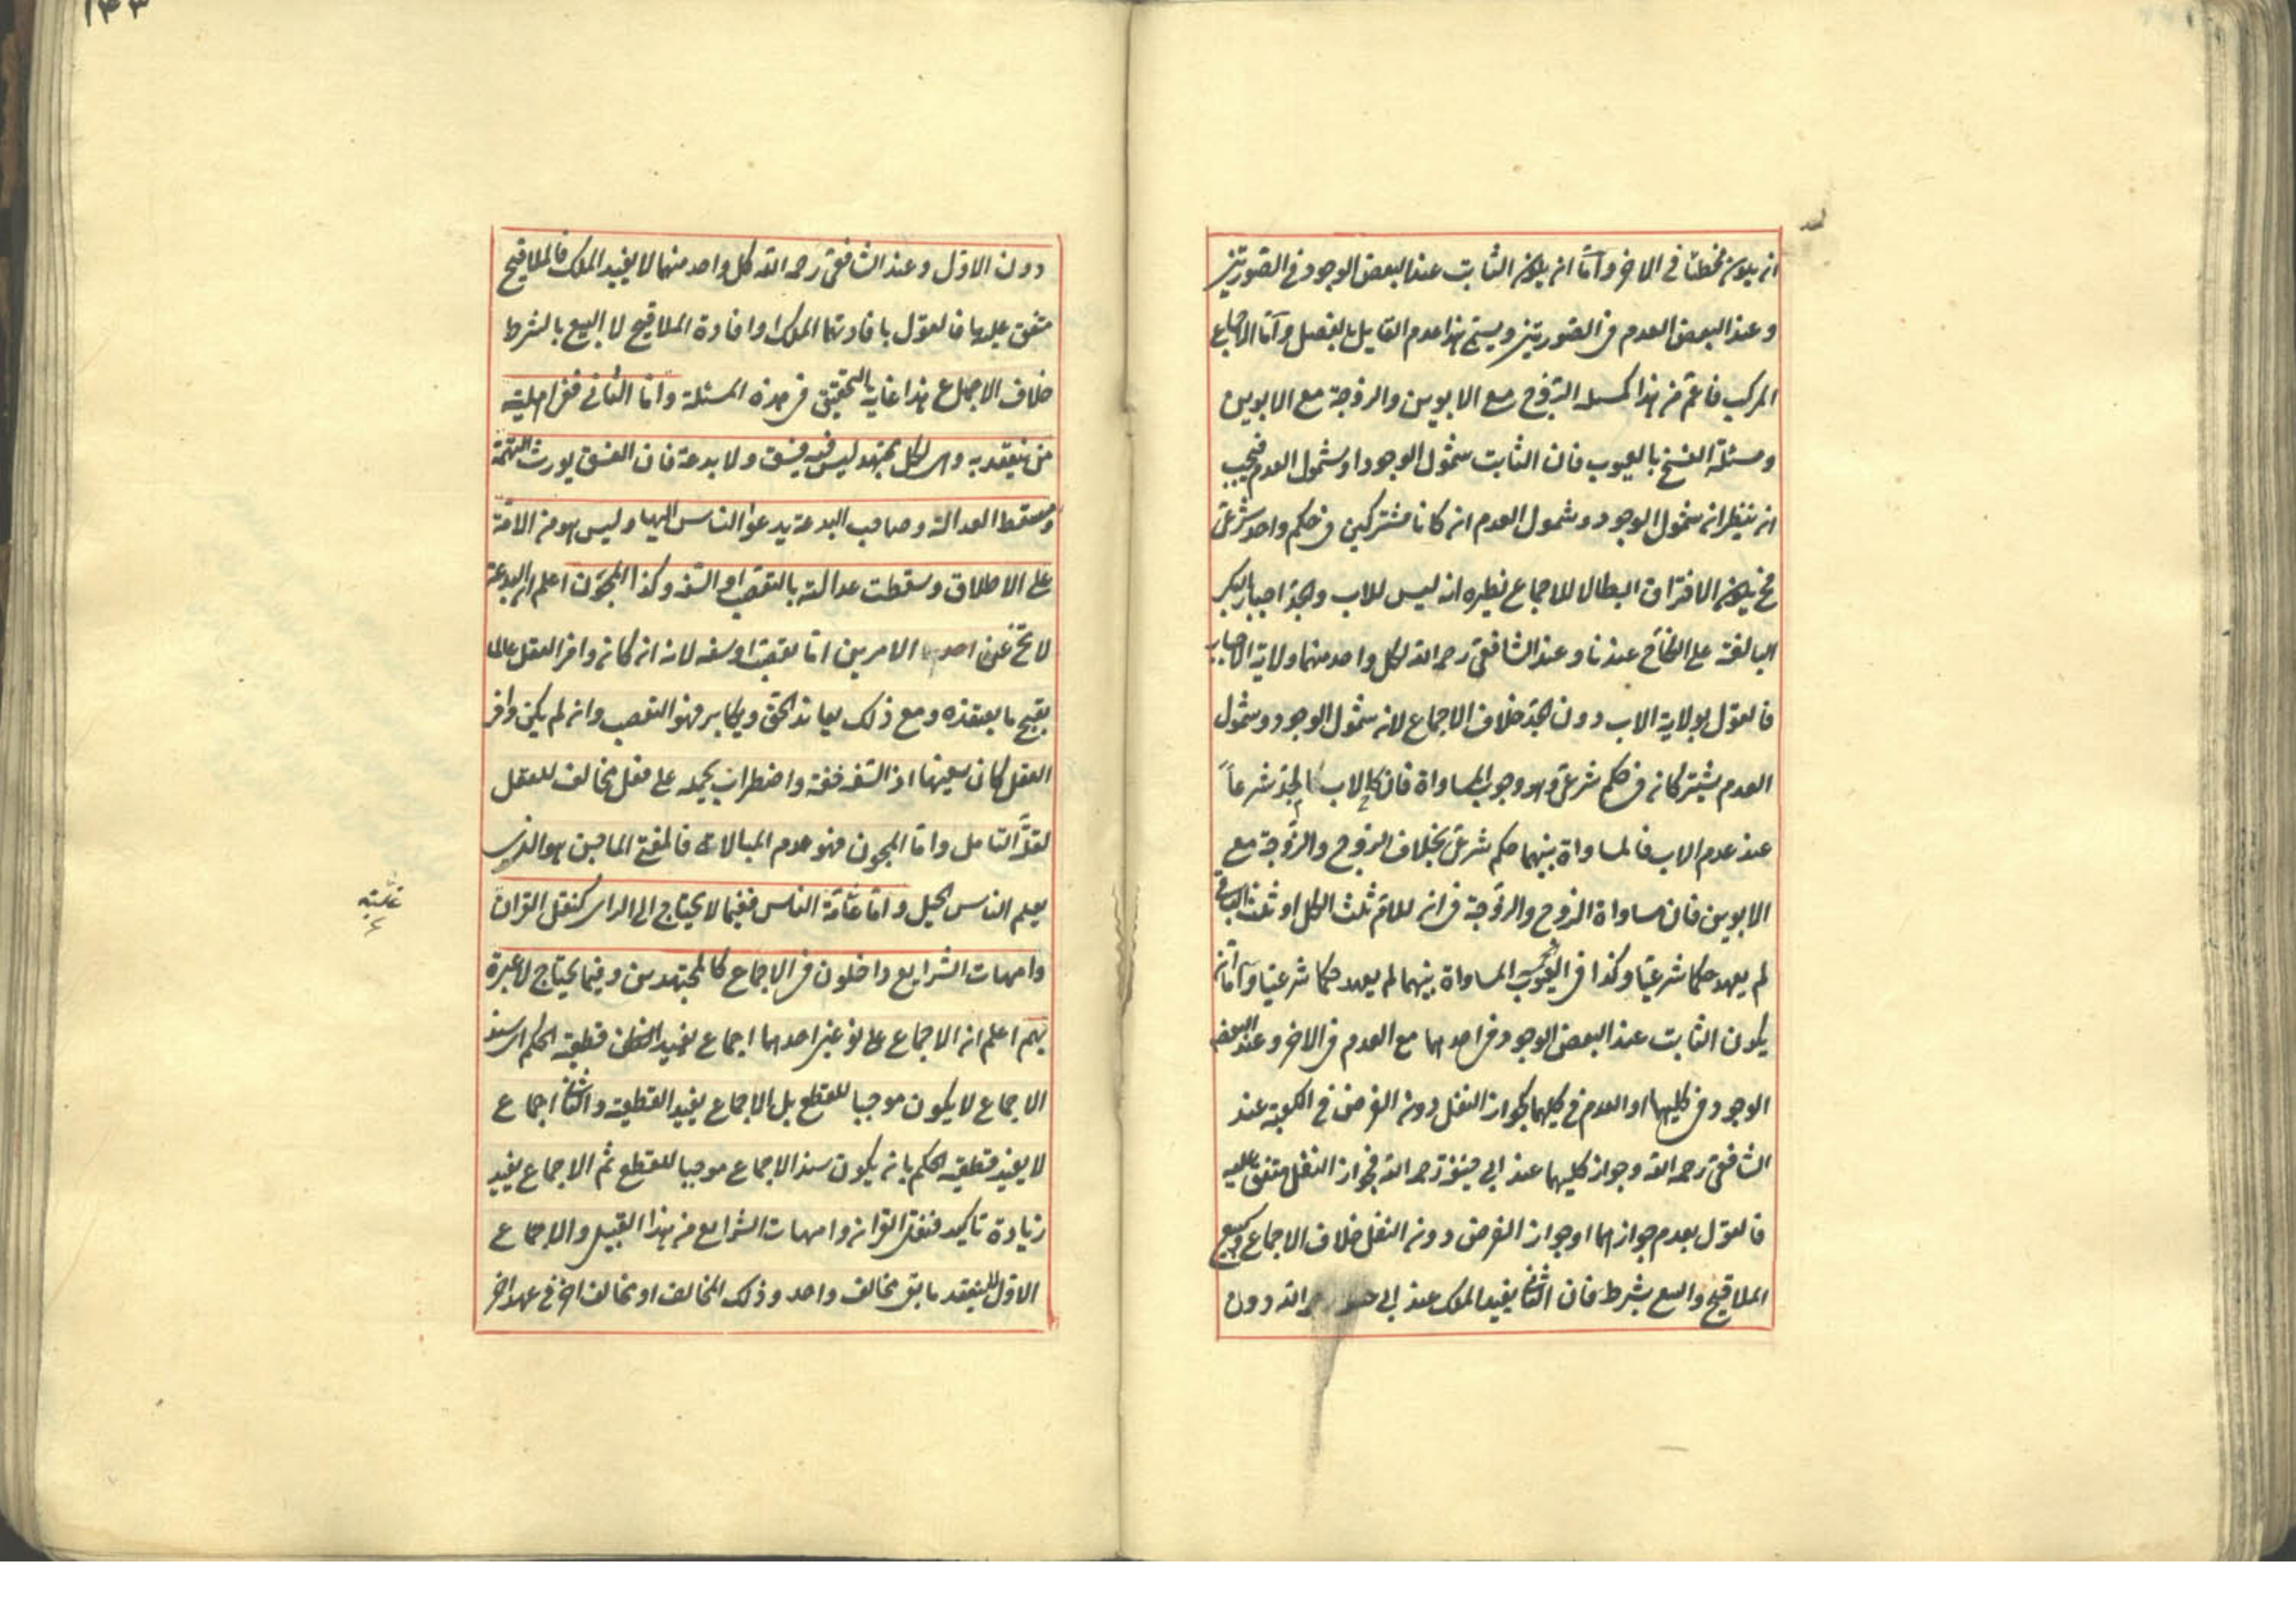 ان يكون مخطئا في الاخر واما ان يكون الثابت عند البعض الوجود في الصورتين
وعند البعض العدم في الصورتين ويسمى هذا عدم القايل بالفصل واما الاجماع
المركب فاعم من هذا كمسئلة الزوج مع الابوين والزوجة مع الابوين
ومسئلة الفسخ بالعيوب فان الثابت شمول الوجود او شمول العدم فيجب
ان ينظر ان شمول الوجود وشمول العدم ان كانا مشتركين في حكم واحد شرعى
فح يكون الافتراق ابطالا للاجماع نظيره انه ليس للاب والجد اجبار البكر
البالغة على النكاح عندنا وعند الشافعى رحمه الله لكل واحد منهما ولاية الاجبار
فالقول بولاية الاب دون الجد خلاف الاجماع لان شمول الوجود وشمول
العدم يشتركان في حكم شرعى وهو وجوب المساواة فان كالاب الجد شرعاً
عند عدم الاب فالمساواة بينهما حكم شرعى بخلاف الزوج والزوجة مع
الابوين فان مساواة الزوج والزوجة في ان للام ثلث الكل او ثلث الباقى
لم يعهد حكما شرعيا وكذا في العيوب المساواة بينهما لم يعهد حكما شرعيا واما ان
يكون الثابت عند البعض الوجود في احدهما مع العدم في الاخر وعند البعض
الوجود في كليهما او العدم في كليهما كجواز النفل دون الفرض في الكعبة عند
الشافعى رحمه الله وجواز كليهما عند ابي حنيفة رحمه الله فجواز النفل متفق عليه
فالقول بعدم جوازهما او جواز الفرض دون النفل خلاف الاجماع وكبيع
الملاقيح والبيع بشرط فان الثانى يفيد الملك عند ابي حنيفة رحمه الله دون
دون الاول وعند الشافعى رحمه الله كل واحد منهما لا يفيد الملك فالملاقيح
متفق عليها فالقول بافادتهما الملك او افادة الملاقيح لا البيع بالشرط
خلاف الاجماع هذا غاية التحقيق في هذه المسئلة واما الثانى ففى اهلية
من ينعقد به وهى لكل مجتهد ليس فيه فسق ولا بدعة فان الفسق يورث التهمة
ويسقط العدالة وصاحب البدعة يدعوا الناس اليها وليس هو من الامة
على الاطلاق وسقطت عدالته بالتعصب او السفه وكذا المجون اعلم ان البدعة
لا تخ عن احد الامرين اما تعصب او سفه لانه ان كان وافر العقل عالما
بقبح ما يعتقده ومع ذلك يعاند الحق ويكابر فهو التعصب وان لم يكن وافر
العقل كان سفيها اذ السفه خفة واضطراب يحمله على فعل مخالف للعقل
لقلة التامل واما المجون فهو عدم المبالاة فالمفتى الماجن هو الذى
يعلم الناس الحيل واما عامة الناس ففيما لا يحتاج الى الراى كنقل القران
وامهات الشرايع داخلون في الاجماع كالمجتهدين وفيما يحتاج لا عبرة
بهم اعلم ان الاجماع على نوعين احدهما اجماع يفيد قطعية الحكم اى سند
الاجماع لا يكون موجبا للقطع بل الاجماع يفيد القطعية والثانى اجماع
لا يفيد قطعية الحكم بان يكون سند الاجماع موجبا للقطع ثم الاجماع يفيد
زيادة تاكيد فنقل القران وامهات الشرايع من هذا القبيل والاجماع
الاول لا ينعقد ما بقى مخالف واحد وذلك المخالف او مخالف اخر في عهد اخر